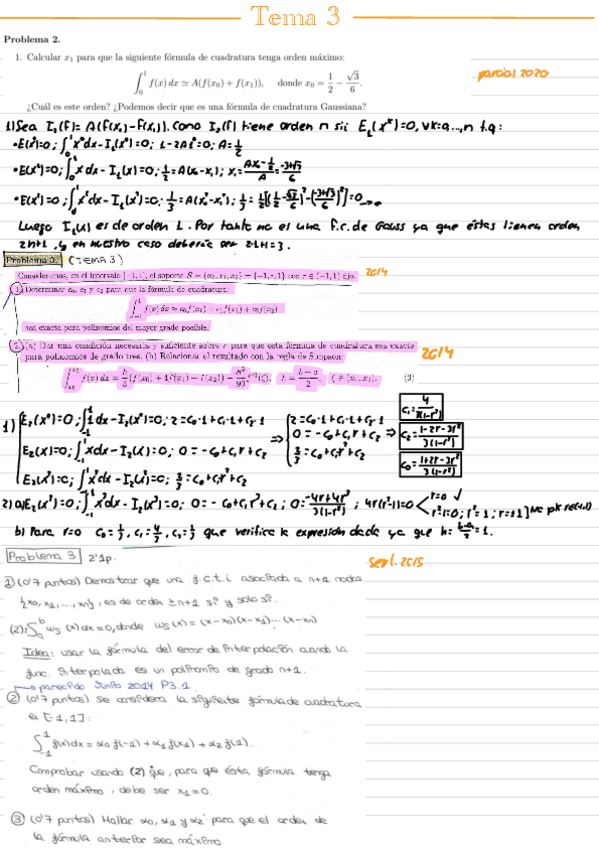 Tema 3
Problema 2.
1. Calcular x₁ para que la siguiente fórmula de cuadratura tenga orden máximo:
∫₀¹ f(x) dx ≃ A(f(x₀) + f(x₁)), donde x₀ = 1/2 − √3/6.
parcial 2020
¿Cuál es este orden? ¿Podemos decir que es una fórmula de cuadratura Gaussiana?
1) Sea I₁(f) = A(f(x₀)-f(x₁)). Como I₂(f) tiene orden n sii E_L(x^k)=0, ∀k=0,...,n t.q:
• E(x⁰)=0; ∫₀¹ x⁰dx - I_L(x⁰)=0; 1-2A=0; A=1/2
Luego I₁(x) es de orden 1. Por tanto no es una f.c. de Gauss ya que éstas tienen orden
2n+1, y en nuestro caso debería ser 2·1+1=3.
Problema 3. (TEMA 3)
Consideremos, en el intervalo [−1, 1], el soporte S = {x₀, x₁, x₂} = {−1, r, 1} con r ∈ (−1, 1) fijo.
2014
1) Determinar c₀, c₁ y c₂ para que la fórmula de cuadratura
∫₋₁¹ f(x) dx ≃ c₀f(x₀) + c₁f(x₁) + c₂f(x₂)
sea exacta para polinomios del mayor grado posible.
2) (a) Dar una condición necesaria y suficiente sobre r para que esta fórmula de cuadratura sea exacta
para polinomios de grado tres. (b) Relacionar el resultado con la regla de Simpson:
2014
(3)
1) E₂(x⁰)=0; ∫₋₁¹ 1dx - I₂(x⁰)=0; 2=c₀·1+c₁·1+c₂·1
E₂(x)=0; ∫₋₁¹ xdx - I₂(x)=0; 0=-c₀+c₁r+c₂
⇒ { 2=c₀·1+c₁·1+c₂·1
0=-c₀+c₁r+c₂
2/3=c₀+c₁r²+c₂
⇒ c₁=4/3(1-r²)
c₂=1-2r-3r²/3(1-r²)
c₀=1+2r-3r²/3(1-r²)
2) a) E₂(x³)=0; ∫₋₁¹ x³dx - I₂(x³)=0; 0=-c₀+c₁r³+c₂; 0=-4r+4r³/3(1-r²); 4r(r²-1)=0 r=0 ✓
r²-1=0; r²=1; r=±1] No pk r∈(-1,1)
b) Para r=0 c₀=1/3, c₁=4/3, c₂=1/3 que verifica la expresión dada ya que h=b-a/2=1.
Problema 3 2'1p.
sept. 2015
1) (0'7 puntos) Demostrar que una f.c.t.i asociada a n+1 nodos
{x₀, x₁, ..., xₙ}, es de orden ≥ n+1 si y solo si.
(2): ∫ₐᵇ ω_S(x)dx=0, donde ω_S(x) = (x-x₀)(x-x₁)...(x-xₙ)
Idea: usar la fórmula del error de interpolación cuando la
func. interpolada es un polinomio de grado n+1.
→ parecido Junio 2014 P3.1.
2) (0'7 puntos) Se considera la siguiente fórmula de cuadratura
en [-1,1]:
∫₋₁¹ f(x)dx ≃ α₀ f(-1) + α₁ f(x₁) + α₂ f(1).
Comprobar usando (2) que, para que ésta fórmula tenga
orden máximo, debe ser x₁=0.
3) (0'7 puntos) Hallar α₀, α₁ y α₂ para que el orden de
la fórmula anterior sea máximo